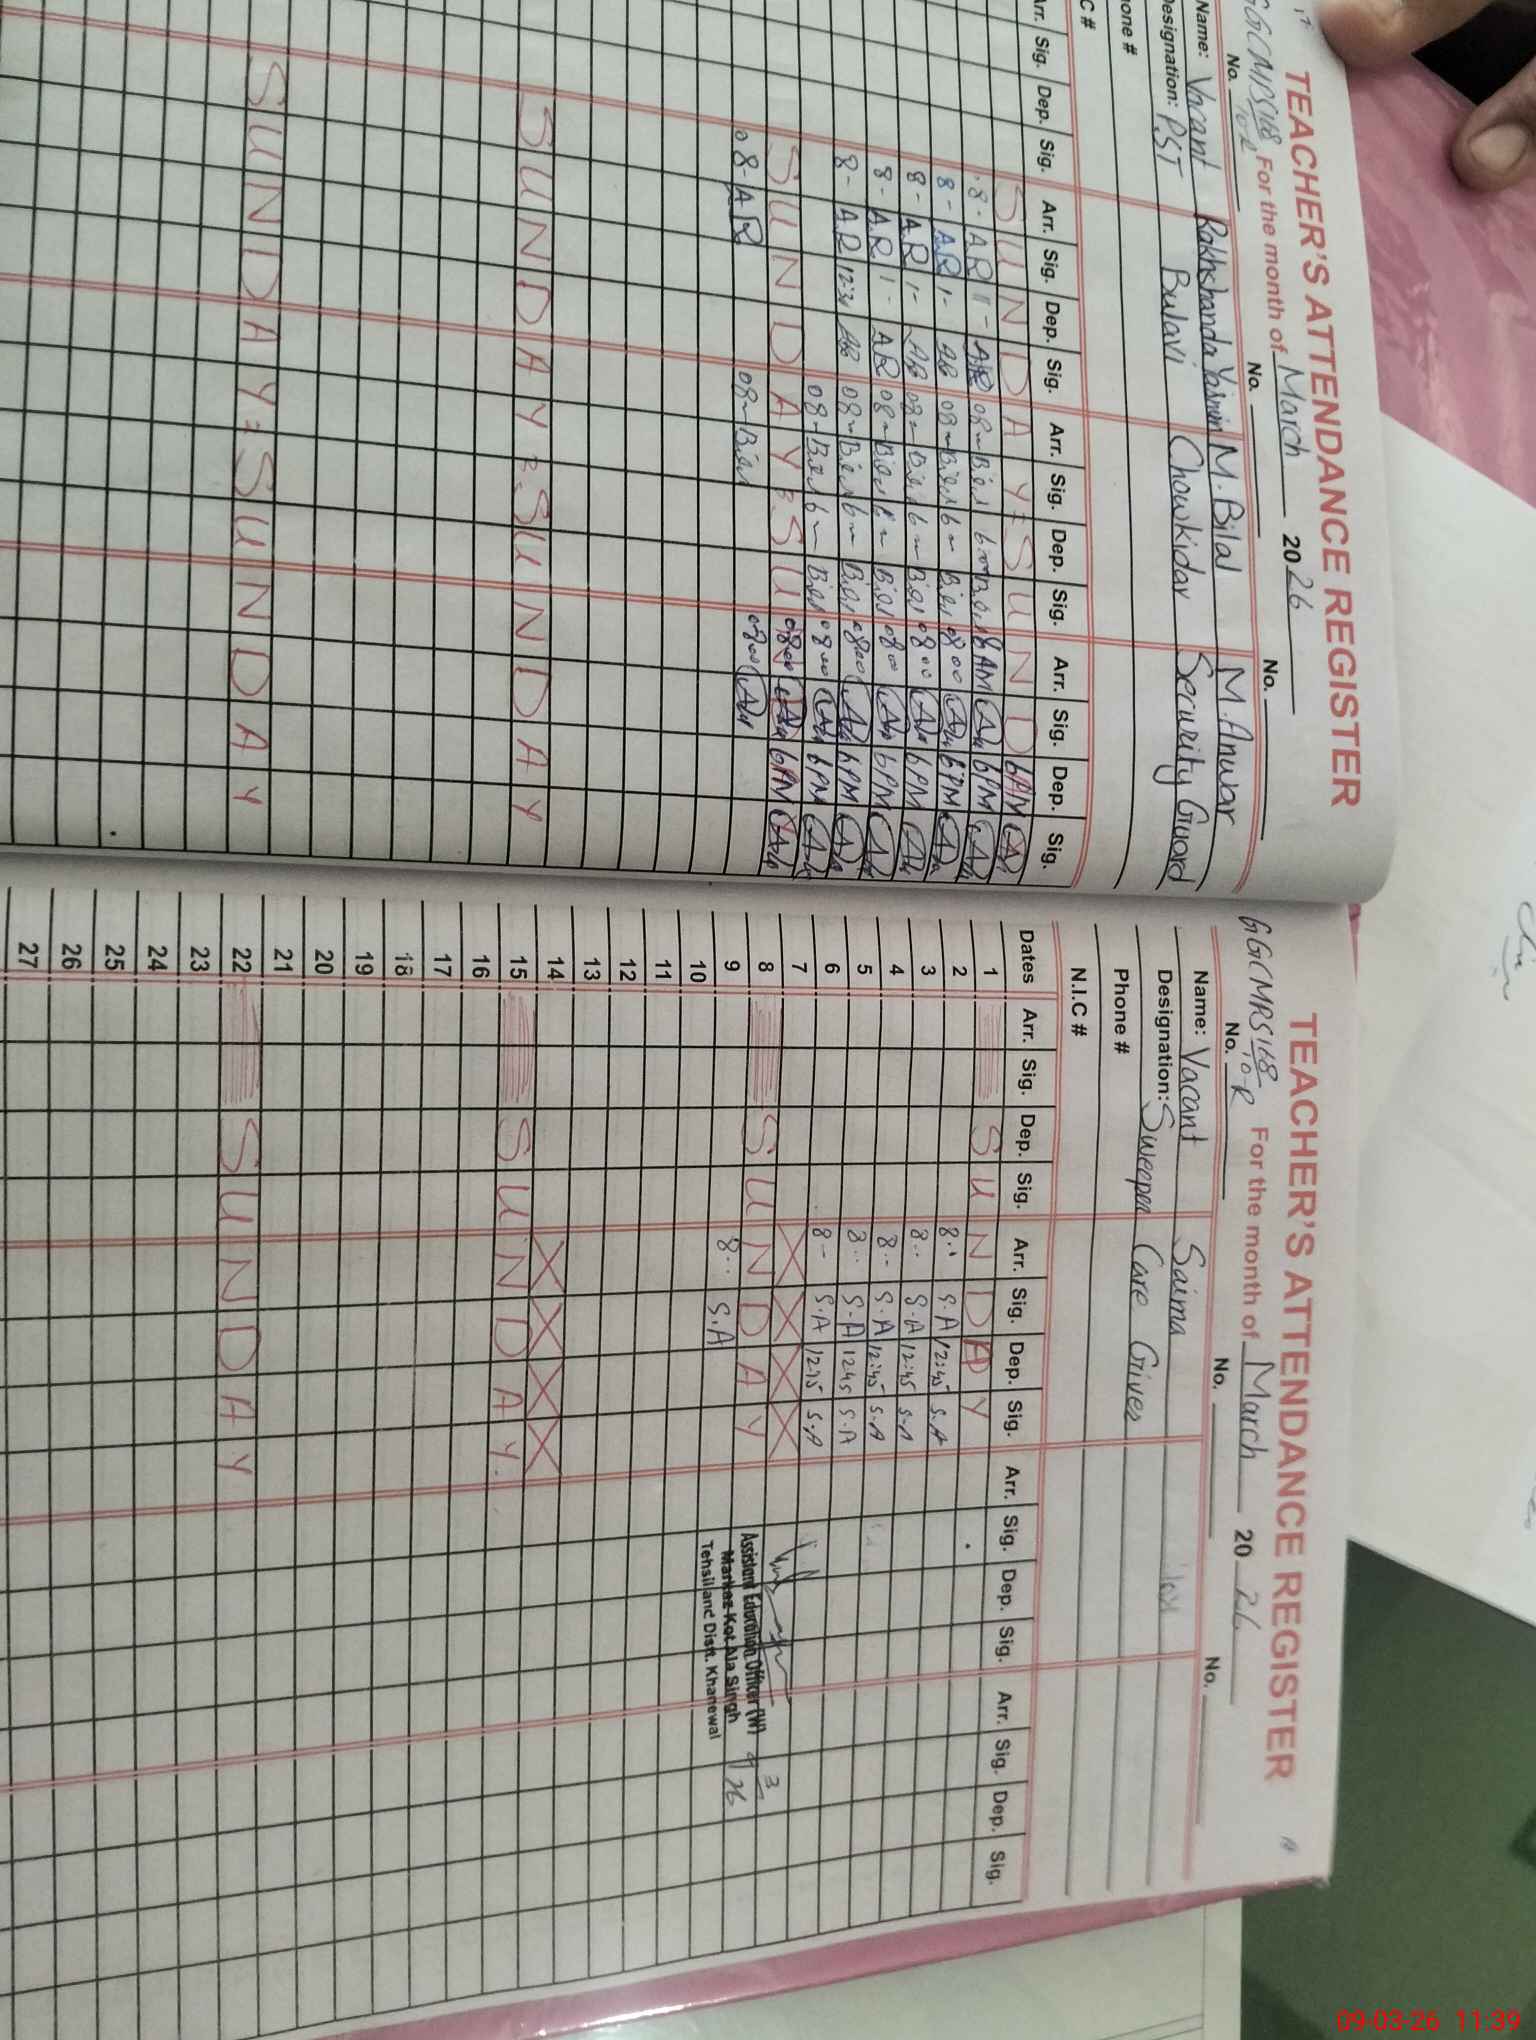 TEACHER'S ATTENDANCE REGISTER
GGCMRS 168/10-R For the month of March 2026
No. No. No.
Name: Vacant Rakhshanda Yasmin M. Bilal M. Anwar
Designation: PST Bulavi Chowkidar Security Guard
Phone #
C #
Arr. Sig. Dep. Sig. Arr. Sig. Dep. Sig. Arr. Sig. Dep. Sig. Arr. Sig. Dep. Sig.
SUNDAY = SUND 6PM
8- AR 1- AR 08- 8AM 6PM
8- AR 1- AR 08- 6- 0800 6PM
8- AR 1- AR 08- 6- 0800 6PM
8- AR 1- AR 08- 6- 0800 6PM
8- AR 12:30 AR 08- 6- 0800 6PM
08- 6- 0800 6PM
SUNDAY = SU 0800 6PM
08- AR 08- 0800
SUNDAY = SUNDAY
SUNDAY = SUNDAY
TEACHER'S ATTENDANCE REGISTER
GGCMRS 168/10-R For the month of March 2026
No. No. No.
Name: Vacant Saima
Designation: Sweeper Care Giver
Phone #
N.I.C #
Dates Arr. Sig. Dep. Sig. Arr. Sig. Dep. Sig. Arr. Sig. Dep. Sig. Arr. Sig. Dep. Sig.
1 SUNDAY
2 8.. S.A 12:45 S.A
3 8.. S.A 12:45 S.A
4 8.. S.A 12:45 S.A
5 8.. S.A 12:45 S.A
6 8- S.A 12:15 S.A
7 X X X X
8 SUNDAY
9 8... S.A
10
11
12
13
14 X X X X
15 SUNDAY
16
17
18
19
20
21
22 SUNDAY
23
24
25
26
27
Assistant Education Officer (W)
Markaz Kot Ala Singh
Tehsil and Distt. Khanewal
9/3/26
09-03-26 11:39